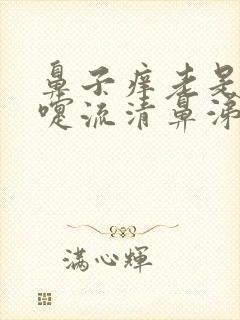 鼻子痒老是
嚏流清鼻涕
满心輝